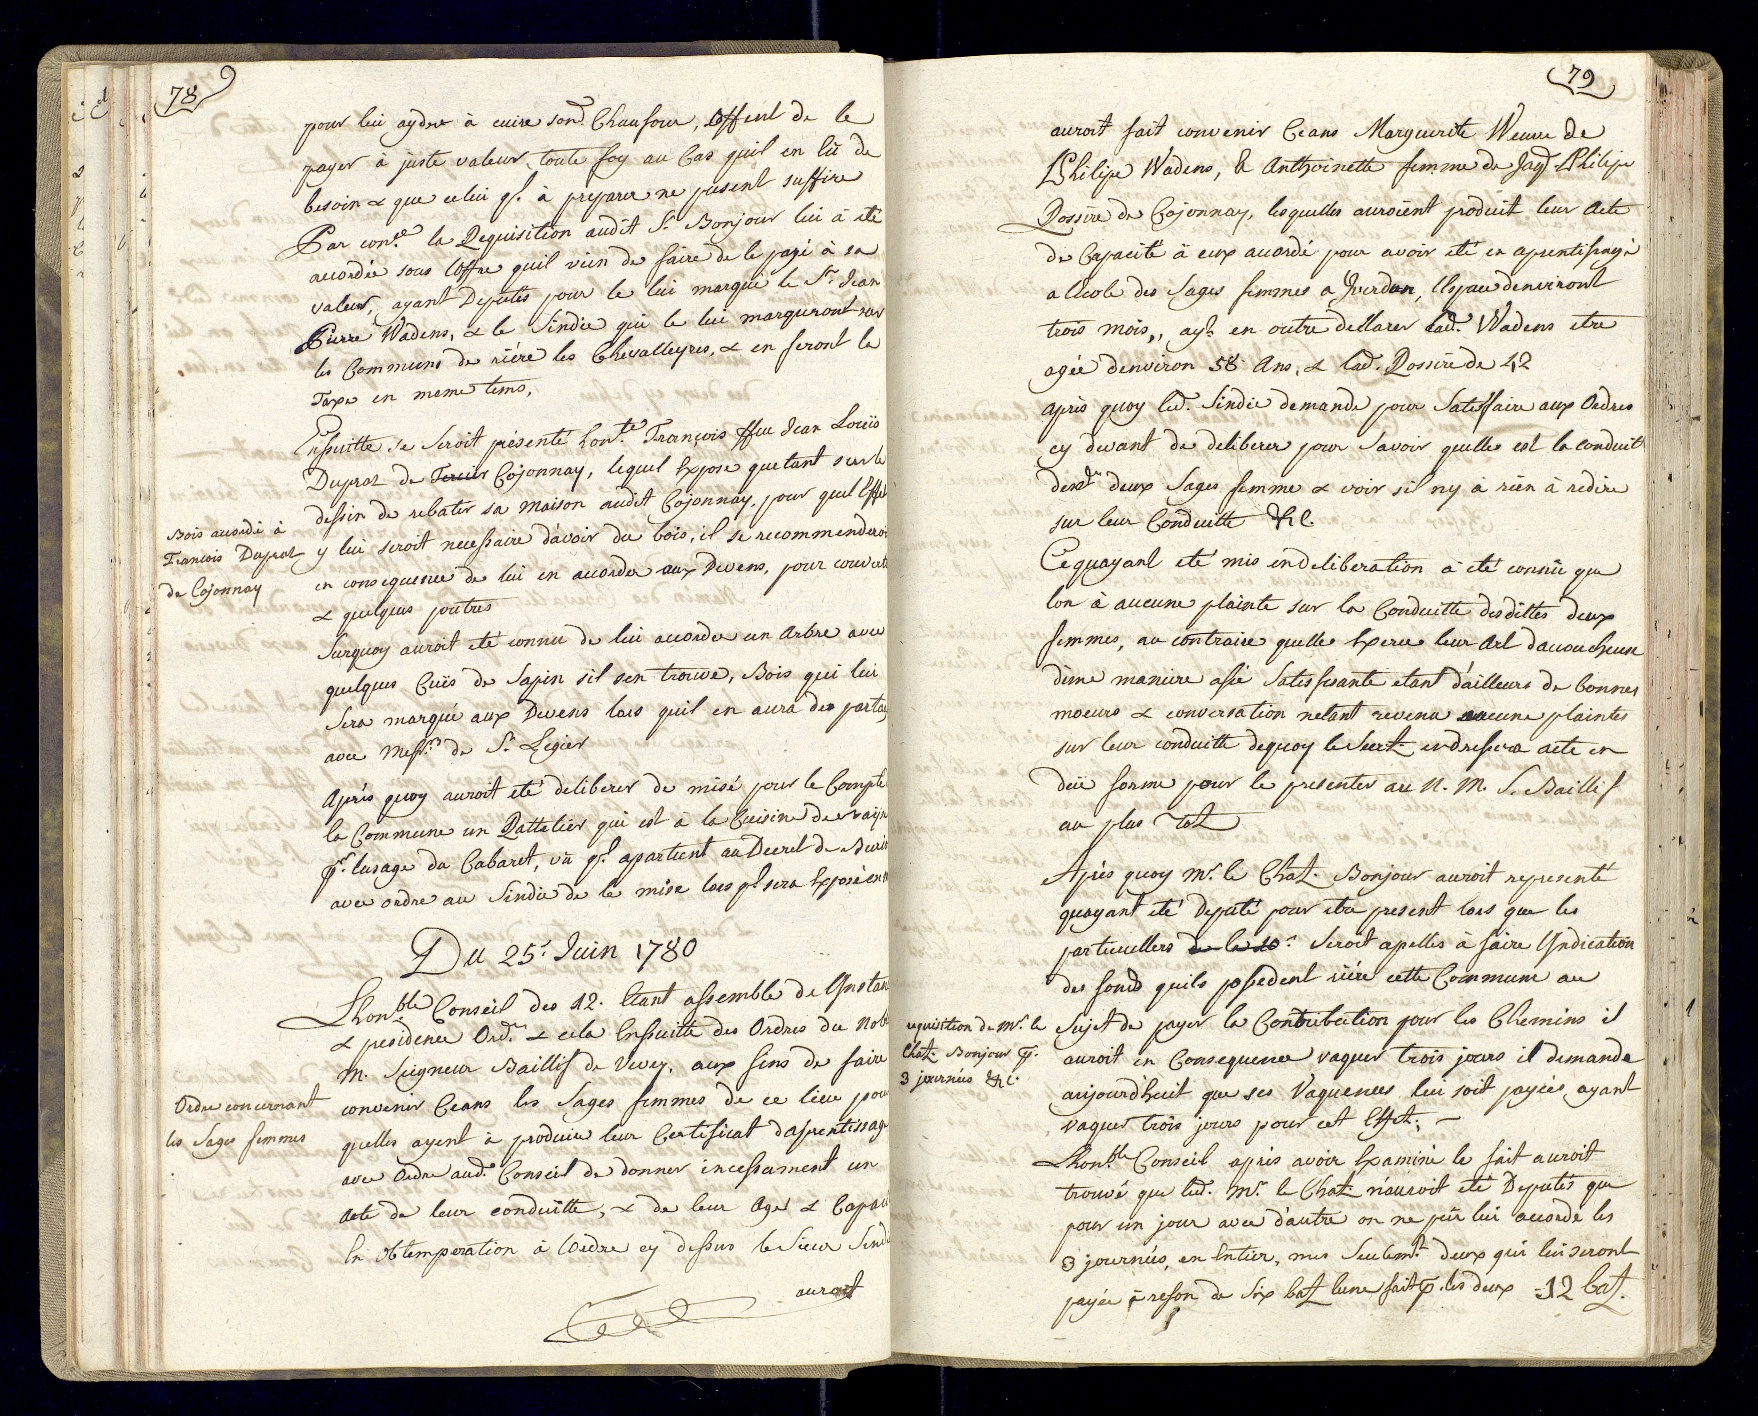 78
pour lui aydre à cuire sond. Chaufour, offrent de le
payer à juste valeur, toute foy au Cas quil en lû de
besoin & que celui ql. à preparer ne pusent suffire
Par conse. la Requisition audit Sr. Bonjour lui à eté
accordée sous loffre quil vien de faire de le payé à sa
valeur, ayant Deputés pour le lui marqué le Sr. Jean
Pierre Wadens, & le Sindic qui le lui marqueront sur
les Communs de riére les Chevalleyres, & en feront la
Taxe en meme tems,
Ensuitte se seroit présenté honte. François ffeu Jean Louis
Dupraz de Cojonnay, lequel Expose quetant sur le
dessin de rebater sa maison audit Cojonnay, pour quel Effet
Bois accordé à
François Dupraz
de Cojonnay
y lui seroit necessaire d'avoir du bois, il se recommenderoi
en consequence de lui en accorder aux Devens, pour couverte
& quelques poutres
Surquoy auroit eté connu de lui accorder un Arbre avec
quelques Cuës de Sapin sil sen trouve, Bois qui lui
sera marqué aux Devens lors quil en aura des parta
avec Messrs. de St. Legier
Aprés quoy auroit eté deliberer de misé pour le Compte
la Commune un Rattelier qui est à la Cuisine de
pr. lusage du Cabaret, vû ql. apartient au Decret de
avec ordre au Sindic de le mise lors ql. sera Exposé en
Du 25e. Juin 1780
Lhonble Conseil des 12. Etant assemble de lInstan
& presidence Ordre. & cela Ensuitte des Ordres du Noble
M. Seigneur Baillif de Vevey, aux fins de faire
Ordre concernant
les Sages femmes
convenir Ceans les Sages femmes de ce lieu pour
quelles ayent à produire leur Certificat daprentissage
avec Ordre aud. Conseil de donner incessament un
Acte de leur conduitte, & de leur Age & Capaci
En Obtemperation à lordre cy dessus le Sieur Sindic
auroit
79
auroit fait convenir Ceans Marguerite Weuve de
Philipe Wadens, & Anthoinette femme de Jaq. Philipe
Rossire de Cojonnay, lesquelles auroient produit leur Acte
de Capacité à eux accordé pour avoir eté en aprentissagé
a lEcole des Sages femmes a Yverdun, lEspace denviront
trois mois, ayt. en outre declarer lad. Wadens etre
agée denviron 58 Ans, & lad. Rossire de 42
Après quoy led. Sindic demande pour Satisffaire aux Ordres
cy devant de deliberer pour savoir quelle est la conduit
desd. deux Sages femme & voir sil ny à rien à redire
sur leur Conduitte &c.
Cequayant eté mis en deliberation à eté connû que
lon à aucune plainte sur la Conduitte desdittes deux
femmes, au contraire quelle Exerce leur Art daccoucheuse
d'une maniere assé Satisfesante etant d'ailleurs de bonnes
moeurs & conversation netant revenu aucune plaintes
sur leur conduitte dequoy le Secret. endressera acte en
deüe forme pour le presenter au N. M. S. Baillif
au plus tot
Après quoy Mr. le Chat. Bonjour auroit representé
quayant eté Deputé pour etre present lors que les
particulliers de le 10e. Seroit apellés à faire lIndication
des fonds quils possedent riére cette Commune au
requisition de Mr. le
Chat. Bonjour pr.
3 journées &c.
Sujet de payer la Contribution pour les Chemins il
auroit en Consequence vaquer trois jours il demande
aujourdhuit que ses Vaquences lui soit payées ayant
vaquer trois jours pour cet Effet; —
Lhonble Conseil après avoir Examiné le fait auroit
trouvé que led. Mr. le Chat. n'auroit eté Deputés que
pour un jour avec d'autre on ne peû lui accordé les
3 journées, en Entier, mes seulemt. deux qui lui seront
payée à reson de six batz lune fait pr. les deux - 12 batz.